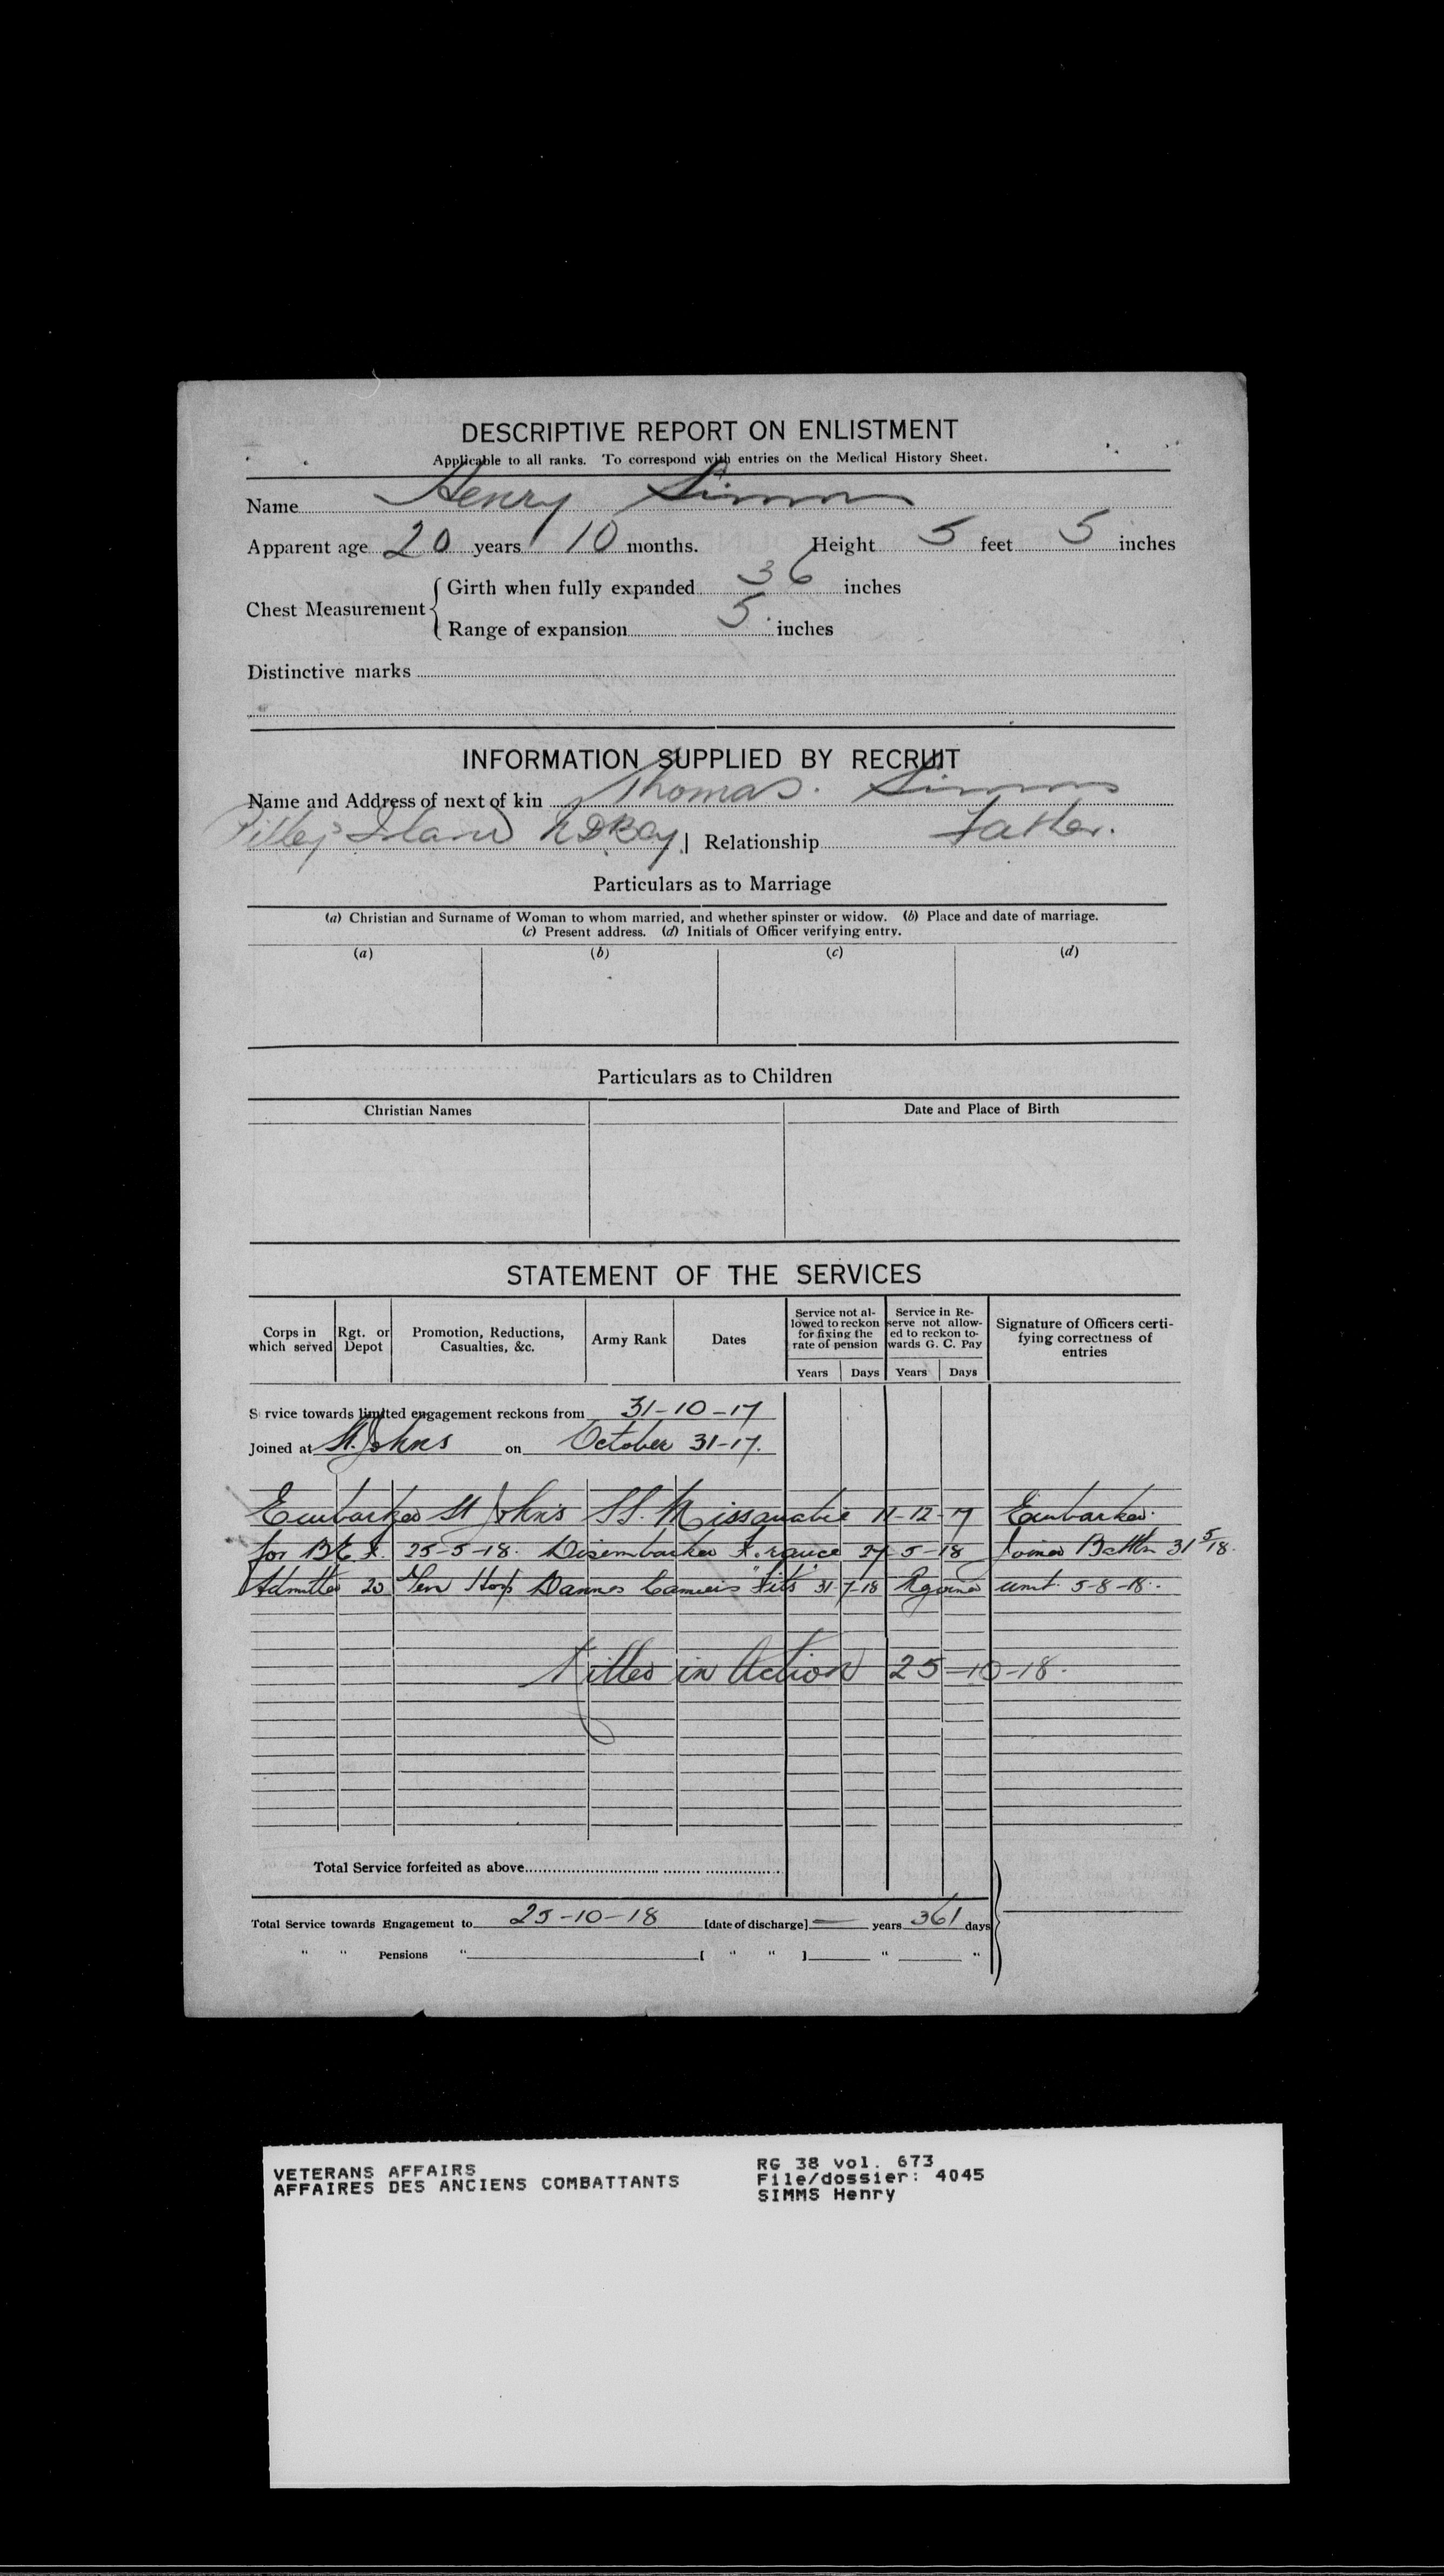 DESCRIPTIVE REPORT ON ENLISTMENT
Applicable to all ranks. To correspond with entries on the Medical History Sheet.
Name Henry Simms
Apparent age 20 years 10 months. Height 5 feet 5 inches
Chest Measurement { Girth when fully expanded 36 inches
Range of expansion 5 inches
Distinctive marks
INFORMATION SUPPLIED BY RECRUIT
Name and Address of next of kin Thomas. Simms
Pilley's Island N D Bay | Relationship Father.
Particulars as to Marriage
(a) Christian and Surname of Woman to whom married, and whether spinster or widow. (b) Place and date of marriage.
(c) Present address. (d) Initials of Officer verifying entry.
(a) (b) (c) (d)
Particulars as to Children
Christian Names Date and Place of Birth
STATEMENT OF THE SERVICES
Corps in which served Rgt. or Depot Promotion, Reductions, Casualties, &c. Army Rank Dates Service not allowed to reckon for fixing the rate of pension Service in Reserve not allowed to reckon towards G. C. Pay Signature of Officers certifying correctness of entries
Years Days Years Days
S rvice towards limited engagement reckons from 31-10-17
Joined at St. Johns on October 31-17.
Embarked St John's SS. Missanabie 11-12-17 Embarked.
for B.E.F. 25-5-18. Disembarked France 27-5-18 Joined Battn 31 5/18.
Admitted 20 Gen Hosp Dannes Camiers "Fits" 31-7-18 Rejoined unit 5-8-18.
Killed in Action 25-10-18.
Total Service forfeited as above
Total Service towards Engagement to 25-10-18 [date of discharge] — years 361 days
" " Pensions " [ " " ] " "
VETERANS AFFAIRS
AFFAIRES DES ANCIENS COMBATTANTS
RG 38 vol. 673
File/dossier: 4045
SIMMS Henry